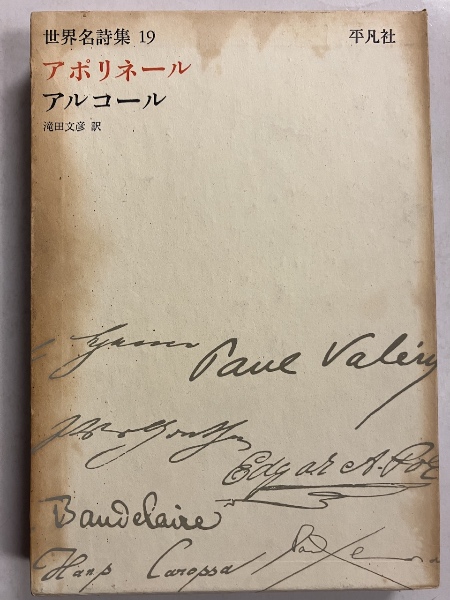 世界名詩集 19
平凡社
アポリネール
アルコール
滝田文彦 訳
Paul Valéry
Edgar A. Poe
Baudelaire
Hans Carossa